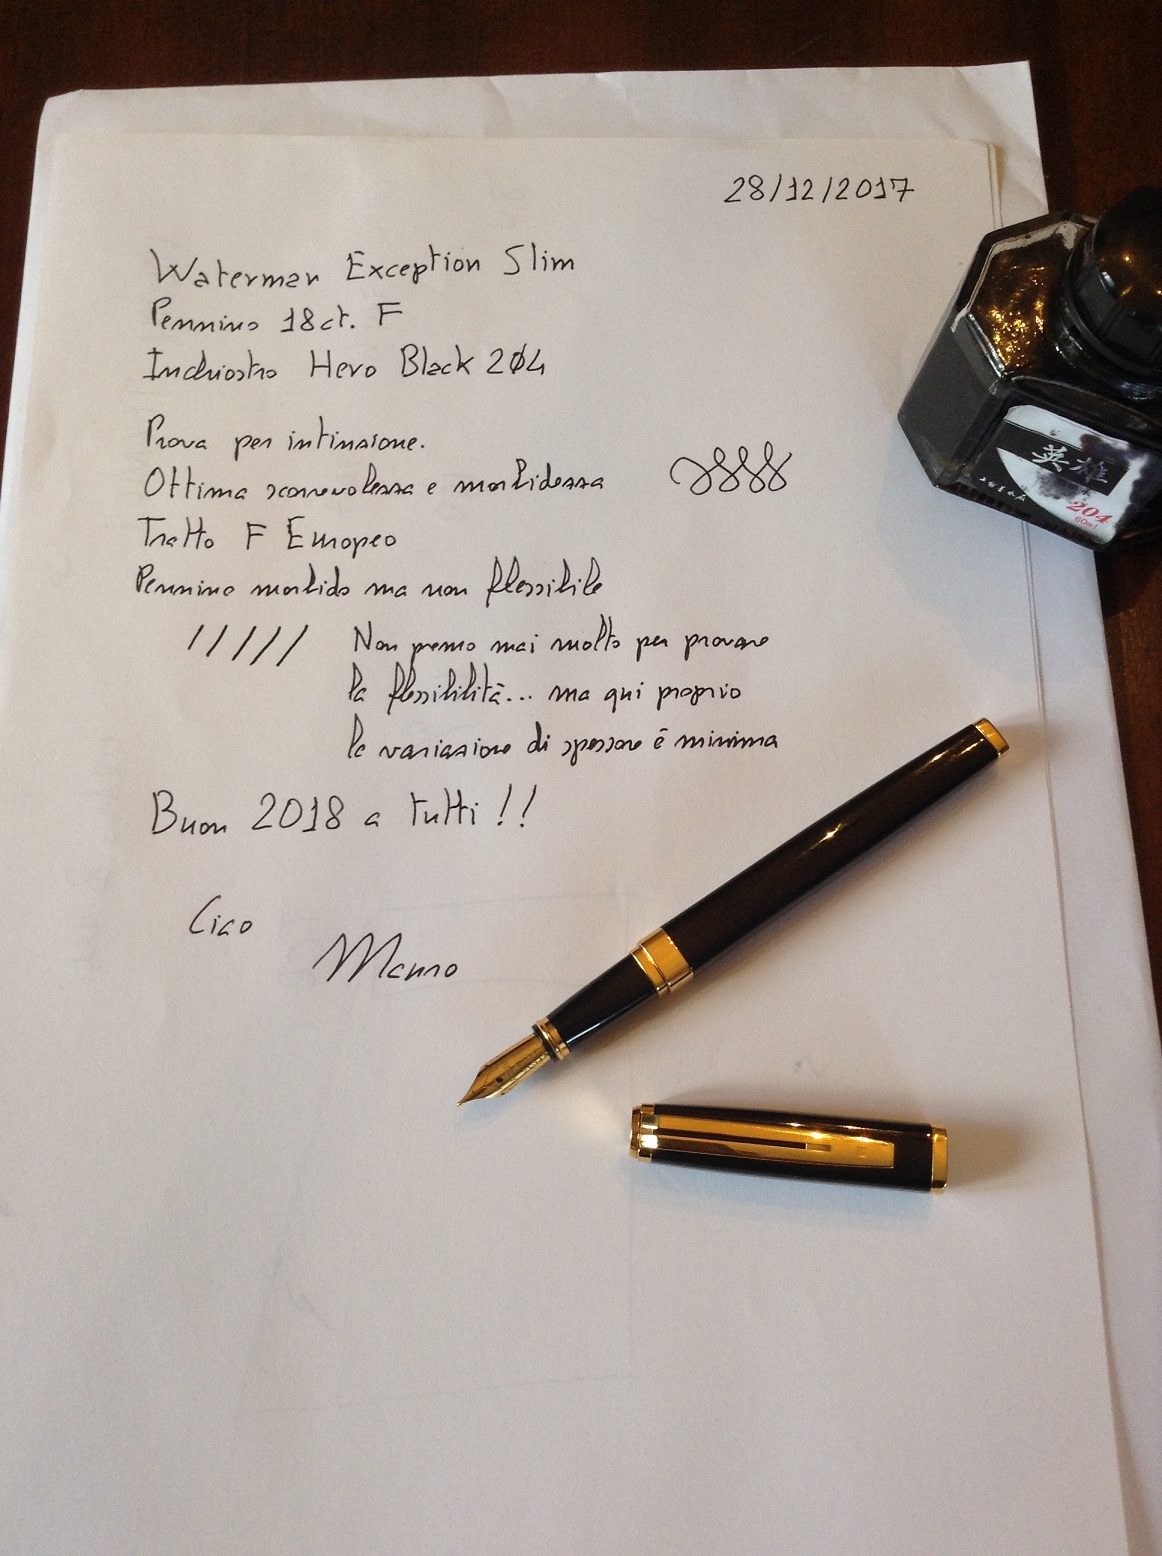 28/12/2017
Waterman Exception Slim
Pennino 18ct. F
Inchiostro Hero Black 204
Prova per intinzione.
Ottima scorrevolezza e morbidezza
Tratto F Europeo
Pennino morbido ma non flessibile
Non premo mai molto per provare
la flessibilità... ma qui proprio
la variazione di spessore è minima
Buon 2018 a tutti!!
Ciao
Mauro
英雄
204
60ml